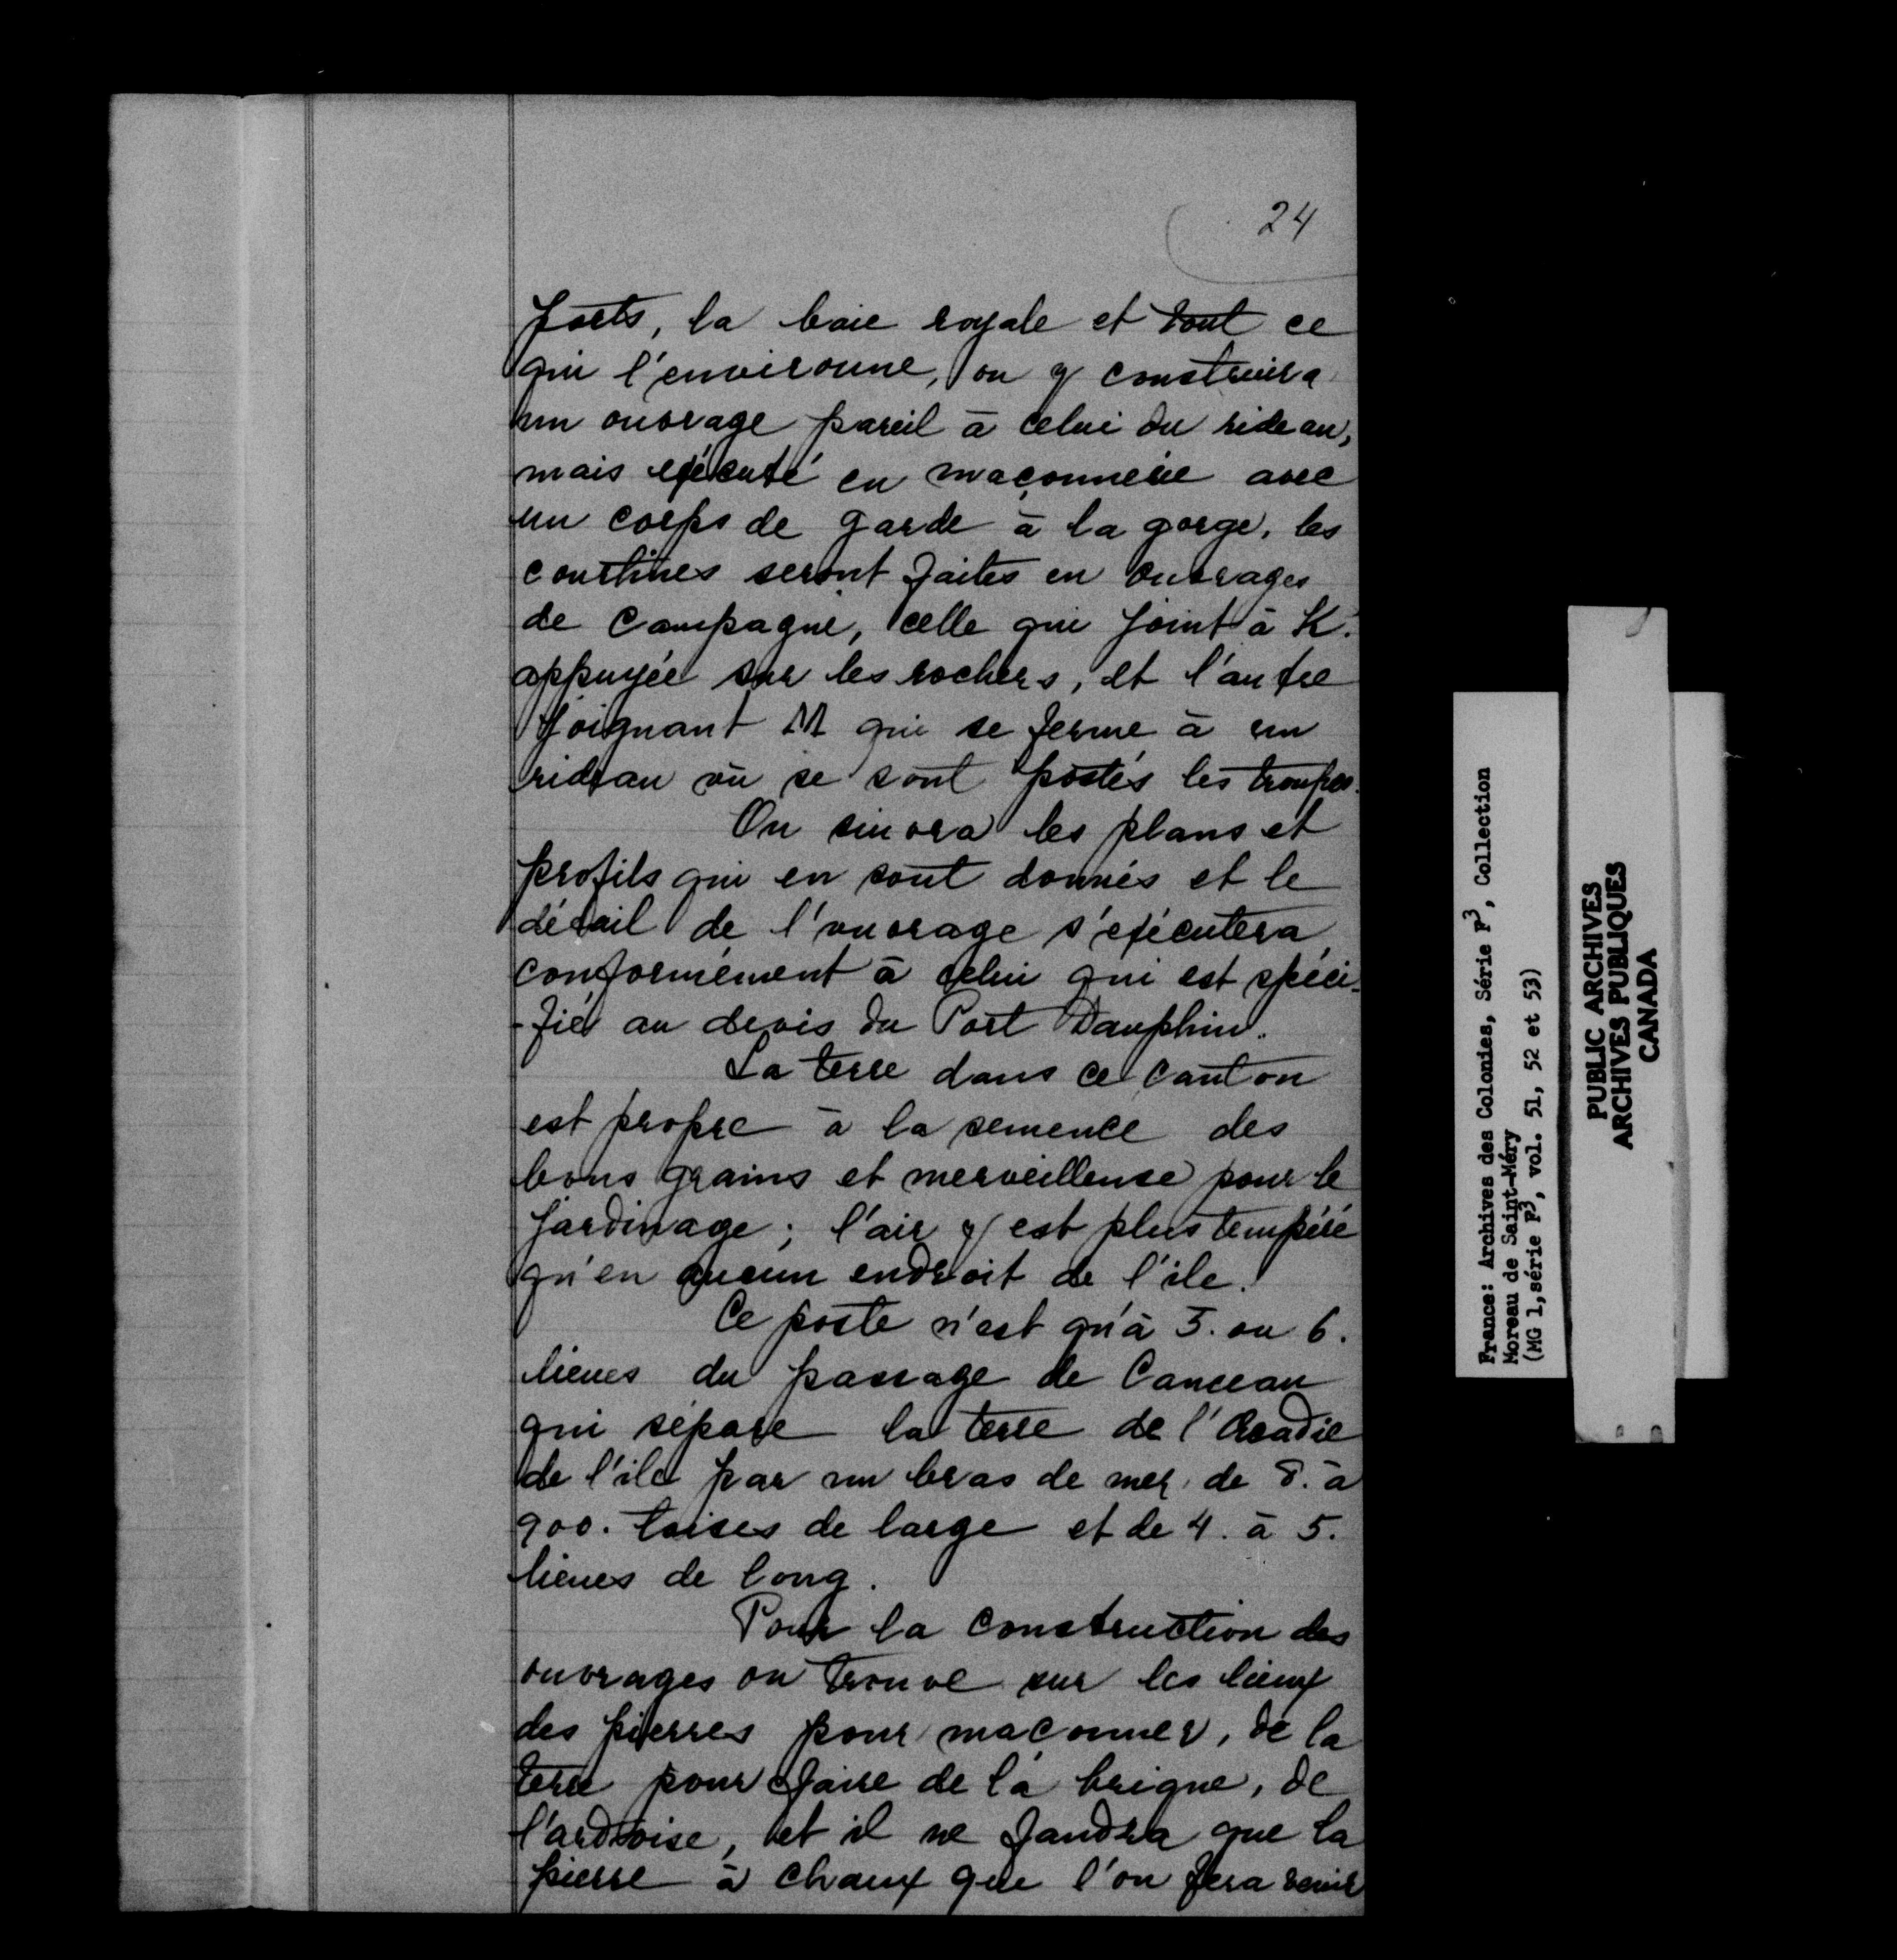 24
forts, la baie royale et tout ce
qui l'environne, on y construira
un ouvrage pareil à celui du rideau,
mais exécuté en maçonnerie avec
un corps de garde à la gorge, les
courtines seront faites en ouvrages
de campagne, celle qui joint à K.
appuyée sur les rochers, et l'autre
joignant M qui se ferme à un
rideau où se sont postés les troupes.
On suivra les plans et
profils qui en sont donnés et le
détail de l'ouvrage s'exécutera
conformément à celui qui est spéci-
-fié au devis du Port Dauphin.
La terre dans ce canton
est propre à la semence des
bons grains et merveilleuse pour le
jardinage ; l'air y est plus tempéré
qu'en aucun endroit de l'ile.
Ce poste n'est qu'à 5. ou 6.
lieues du passage de Canceau
qui sépare la terre de l'Acadie
de l'ile par un bras de mer de 8. à
900. toises de large et de 4. à 5.
lieues de long.
Pour la construction des
ouvrages on trouve sur les lieux
des pierres pour maconner, de la
terre pour faire de la brique, de
l'ardoise, et il ne faudra que la
pierre à chaux que l'on fera venir
France: Archives des Colonies, Série F3, Collection
Moreau de Saint-Méry
(MG 1, série F3, vol. 51, 52 et 53)
PUBLIC ARCHIVES
ARCHIVES PUBLIQUES
CANADA